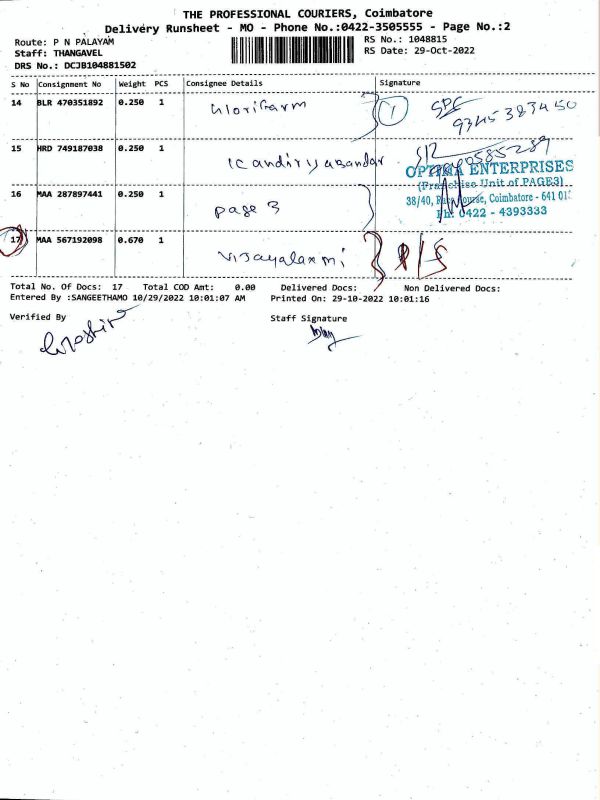 THE PROFESSIONAL COURIERS, Coimbatore
Delivery Runsheet - MO - Phone No.:0422-3505555 - Page No.:2
Route: P N PALAYAM
RS No.: 1048815
Staff: THANGAVEL
RS Date: 29-Oct-2022
DRS No.: DCJB104881502
S No Consignment No Weight PCS Consignee Details Signature
14 BLR 470351892 0.250 1
1
15 HRD 749187038 0.250 1
OPTIMA ENTERPRISES
(Franchise Unit of PAGE3)
16 MAA 287897441 0.250 1 page 3
38/40, Coimbatore - 641
Ph: 0422 - 4393333
17 MAA 567192098 0.670 1 Vijayalaxmi
Total No. Of Docs: 17 Total COD Amt: 0.00 Delivered Docs: Non Delivered Docs:
Entered By :SANGEETHAMO 10/29/2022 10:01:07 AM Printed On: 29-10-2022 10:01:16
Verified By Staff Signature